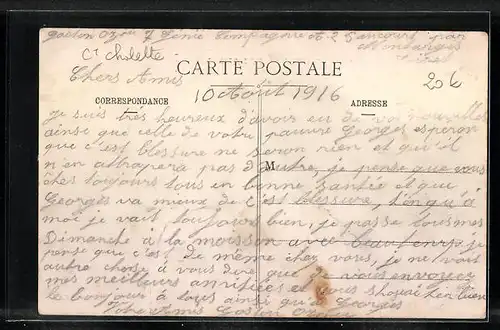 Gaston Ozou 7 Genie Compagnie par
Montargis
Ct Cholette
Chers Amis
CARTE POSTALE
20€
CORRESPONDANCE
10 Août 1916
ADRESSE
je suis très heureux d'avois eu de vos nouvelles
ainsi que celle de votre pauvre Georges esperon
que c'est blessure ne seron rien et qu'il
n'en attrapera pas d'autre, je pense que vous
M
êtes toujours tous en bonne santée et que
Georges va mieux de c'est blessure, tenqu'à
moi je vait toujours bien, je passe tous mes
Dimanche à la moisson avec beau temp je
pense que c'est de même chez vous, je ne voit
autre chose à vous dire que je vous envoyez
mes meilleurs amitiées et vous shouaiter bien
le bonjour à tous ainsi qu'à Georges
Votre Amis Gaston